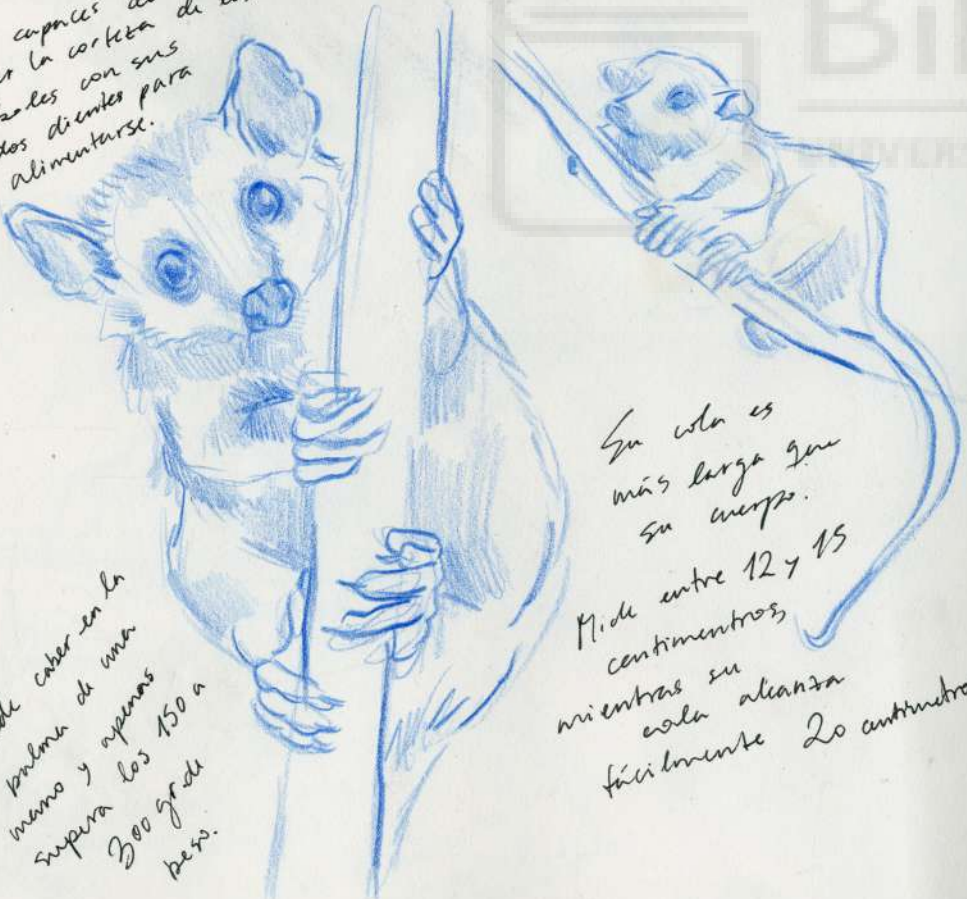 capaces de
la corteza de
con sus
dientes para
alimentarse.
Bi
UNIVERS
Su cola es
más larga que
su cuerpo.
Mide entre 12 y 15
centimentros,
mientras su
cola alcanza
fácilmente 20 centimetro
caber en la
palma de una
mano y apenas
supera los 150 a
300 gr de
peso.